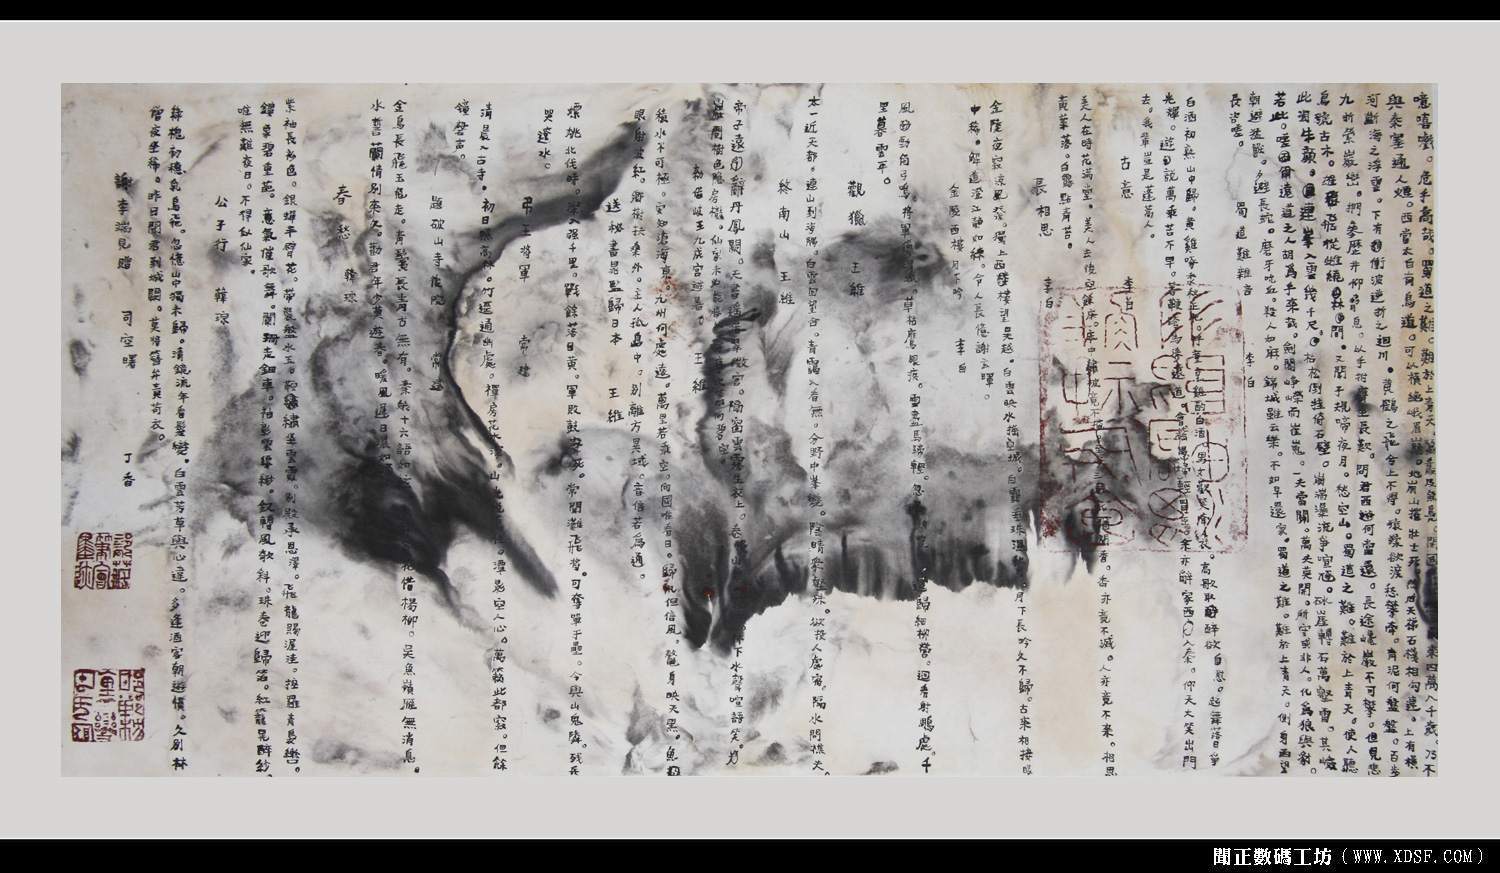 噫嘻戲。危乎高哉。蜀道之難。難於上青天。蠶叢及魚鳧。開國 來四萬八千歲。乃不
與秦塞通人煙。西當太白有鳥道。可以橫絕峨眉巔。地崩山摧壯士死。然后天梯石棧相勾連。上有橫
河斷海之浮雲。下有 衝波逆折之迴川。黃鶴之飛尚上不得。猿猱欲渡愁攀牽。青泥何盤盤。百步
九折縈巖巒。捫參歷井仰脅息。以手拊膺坐長歎。問君西遊何當還。長途巉巖不可攀。但見悲
鳥號古木。雄飛從雌繞林間。又聞子規啼夜月。愁空山。蜀道之難。難於上青天。使人聽
此凋朱顏。連峯入雲幾千尺。枯松倒挂倚石壁。崩湍瀑流爭喧豗。砯崖轉石萬壑雷。其嶮
若此。嗟爾遠道之人胡爲乎來哉。劍閣崢嶸而崔嵬。一夫當關。萬夫莫開。所守或非人。化爲狼與豺。
朝避猛虎。夕避長蛇。磨牙吮血。殺人如麻。錦城雖云樂。不如早還家。蜀道之難。難於上青天。側身西望
長咨嗟。
蜀道難 雜言 李白
白酒初熟山中歸。黃雞啄黍秋正肥。呼童烹雞酌白酒。男女歡笑牽人衣。高歌取醉欲自慰。起舞落日爭
光輝。遊說萬乘苦不早。著鞭跨馬涉遠道。會稽愚婦輕買臣。余亦辭家西入秦。仰天大笑出門
去。我輩豈是蓬蒿人。
古意 李白
美人在時花滿堂。美人去後空餘床。床中繡被 不 至今三 聞香。香亦竟不滅。人亦竟不來。相思
黃葉落。白露點青苔。
長相思 李白
金陵夜寂涼風發。獨上西樓望吳越。白雲映水搖空城。白露垂珠滴秋月。月下長吟久不歸。古來相接眼
中稀。解道澄江靜如練。令人長憶謝玄暉。
金陵西樓月下吟 李白
風勁角弓鳴。將軍獵渭城。草枯鷹眼疾。雪盡馬蹄輕。忽 還歸細柳營。迴看射鵰處。千
里暮雲平。
觀獵 王維
太一近天都。連山到海隅。白雲迴望合。青靄入看無。分野中峯變。陰晴衆壑殊。欲投人處宿。隔水問樵夫。
終南山 王維
帝子遠辭丹鳳闕。天書遙 翠微宮。隔窗雲霧生衣上。卷幔山 下水聲喧語笑。
巖間樹色隱房櫳。仙家未必能勝 向碧空。
勑借岐王九成宮避暑。 王維
積水不可極。安知滄海東。九州何處遠。萬里若乘空。向國唯看日。歸帆但信風。鰲身映天黑。魚
眼射波紅。鄉樹扶桑外。主人孤島中。別離方異域。音信若爲通。
送秘書晁監歸日本 王維
嫖姚北伐時。深入強千里。戰餘落日黃。軍敗鼓聲死。常聞漢飛將。可奪單于壘。今與山鬼隣。殘兵
哭遼水。
弔王將軍 常建
清晨入古寺。初日照高林。竹逕通幽處。禪房花木深。山光 潭影空人心。萬籟此都寂。但餘
鐘磬音。
題破山寺後院 常建
金烏長飛玉兔走。青鬢長青古無有。秦娥十六語如 花惜楊柳。吳魚嶺雁無消息。
水誓蘭情別來久。勸君年少莫遊春。暖風遲日
春愁 韓琮
紫袖長衫色。銀蟬半臂花。帶裝盤水玉。鞍繡坐雲霞。別殿承恩澤。飛龍賜渥洼。控羅青裊轡。
鏤象碧重葩。意氣催歌舞。闌珊走鈿車。袖彰雲縹緲。釵轉鳳欹斜。珠卷迎歸箔。紅籠晃醉紗。
唯無難夜日。不得似仙家。
公子行 韓琮
綠槐初穗乳烏飛。忽憶山中獨未歸。清鏡流年看髮變。白雲芳草與心違。乍逢酒客朝遊慣。久別林
僧夜坐稀。昨日聞君到城闕。莫將簪弁責荷衣。
謝李端見贈 司空曙 丁香
聞正數碼工坊（WWW.XDSF.COM）